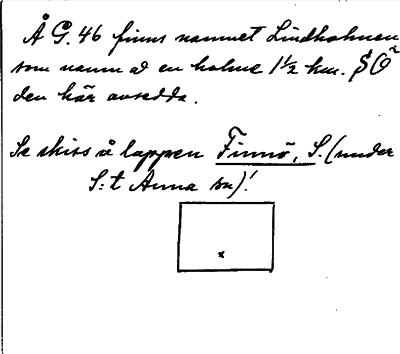 Å G. 46 finns namnet Lindholmen
som namn å en holme 1½ km. SO
den här avsedda.
Se skiss å lappen Finnö, S. (under
S:t Anna sn)!
x